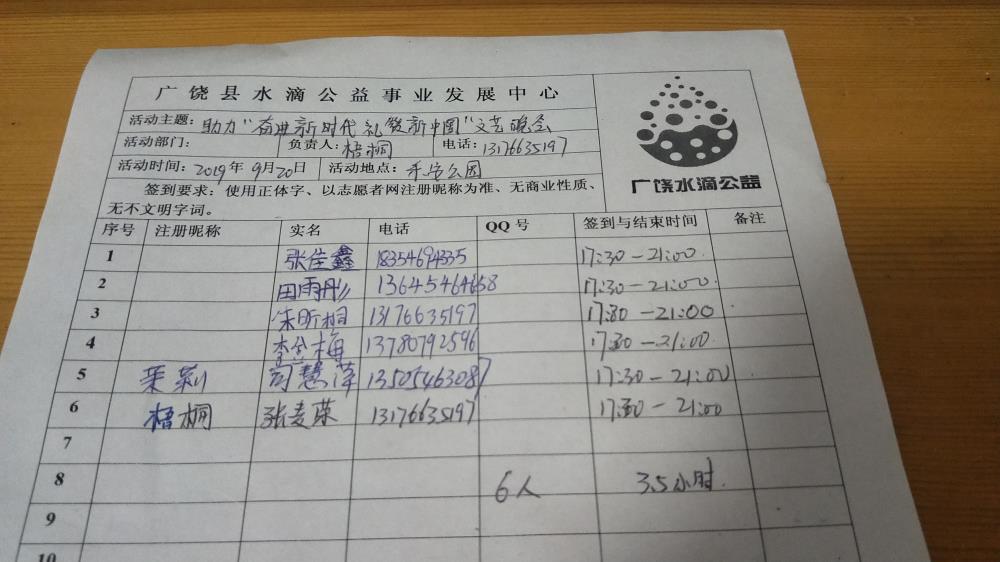 广饶县水滴公益事业发展中心
活动主题：助力"奋进新时代 礼赞新中国"文艺晚会
活动部门： 负责人：梧桐 电话：13176635197
活动时间：2019年9月20日 活动地点：乐安公园
签到要求：使用正体字、以志愿者网注册昵称为准、无商业性质、
无不文明字词。
广饶水滴公益
序号 注册昵称 实名 电话 QQ号 签到与结束时间 备注
1 张佳鑫 18354694335 17:30-21:00
2 田雨彤 13645464658 17:30-21:00
3 朱昕桐 13176635197 17:30-21:00
4 李 梅 13780792596 17:30-21:00
5 茉莉 慧萍 13505463087 17:30-21:00
6 梧桐 张麦荣 13176635197 17:30-21:00
7
8 6人 3.5小时
9
10